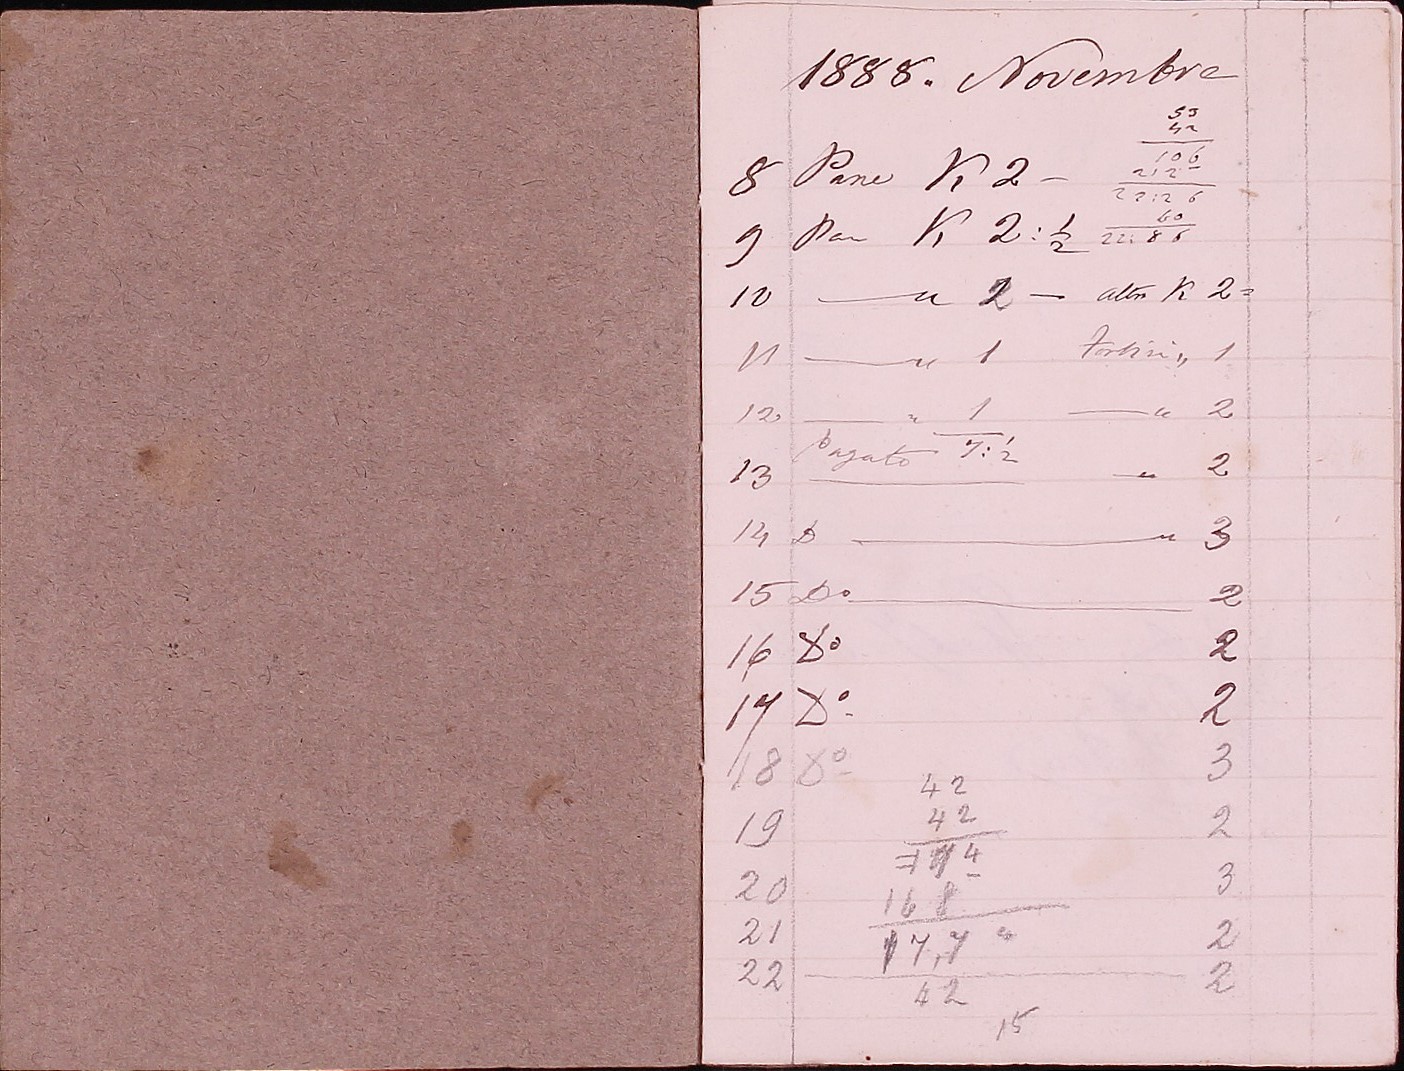 1888. Novembre
53
42
106
212
22:26
60
22:86
8 Pane K 2 –
9 Pan K 2:1/2
10 — " 2 — altri K 2=
11 — " 1 " 1
12 — " 1 — " 2
Pagato 7:1/2
13 " 2
14 D — " 3
15 Do — 2
16 Do 2
17 Do 2
18 Do 3
42
19 42 2
20 3
168
21 2
22 — 2
42
15